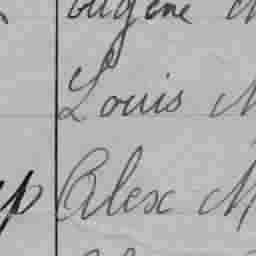 Eugène M
Louis M
Alex M